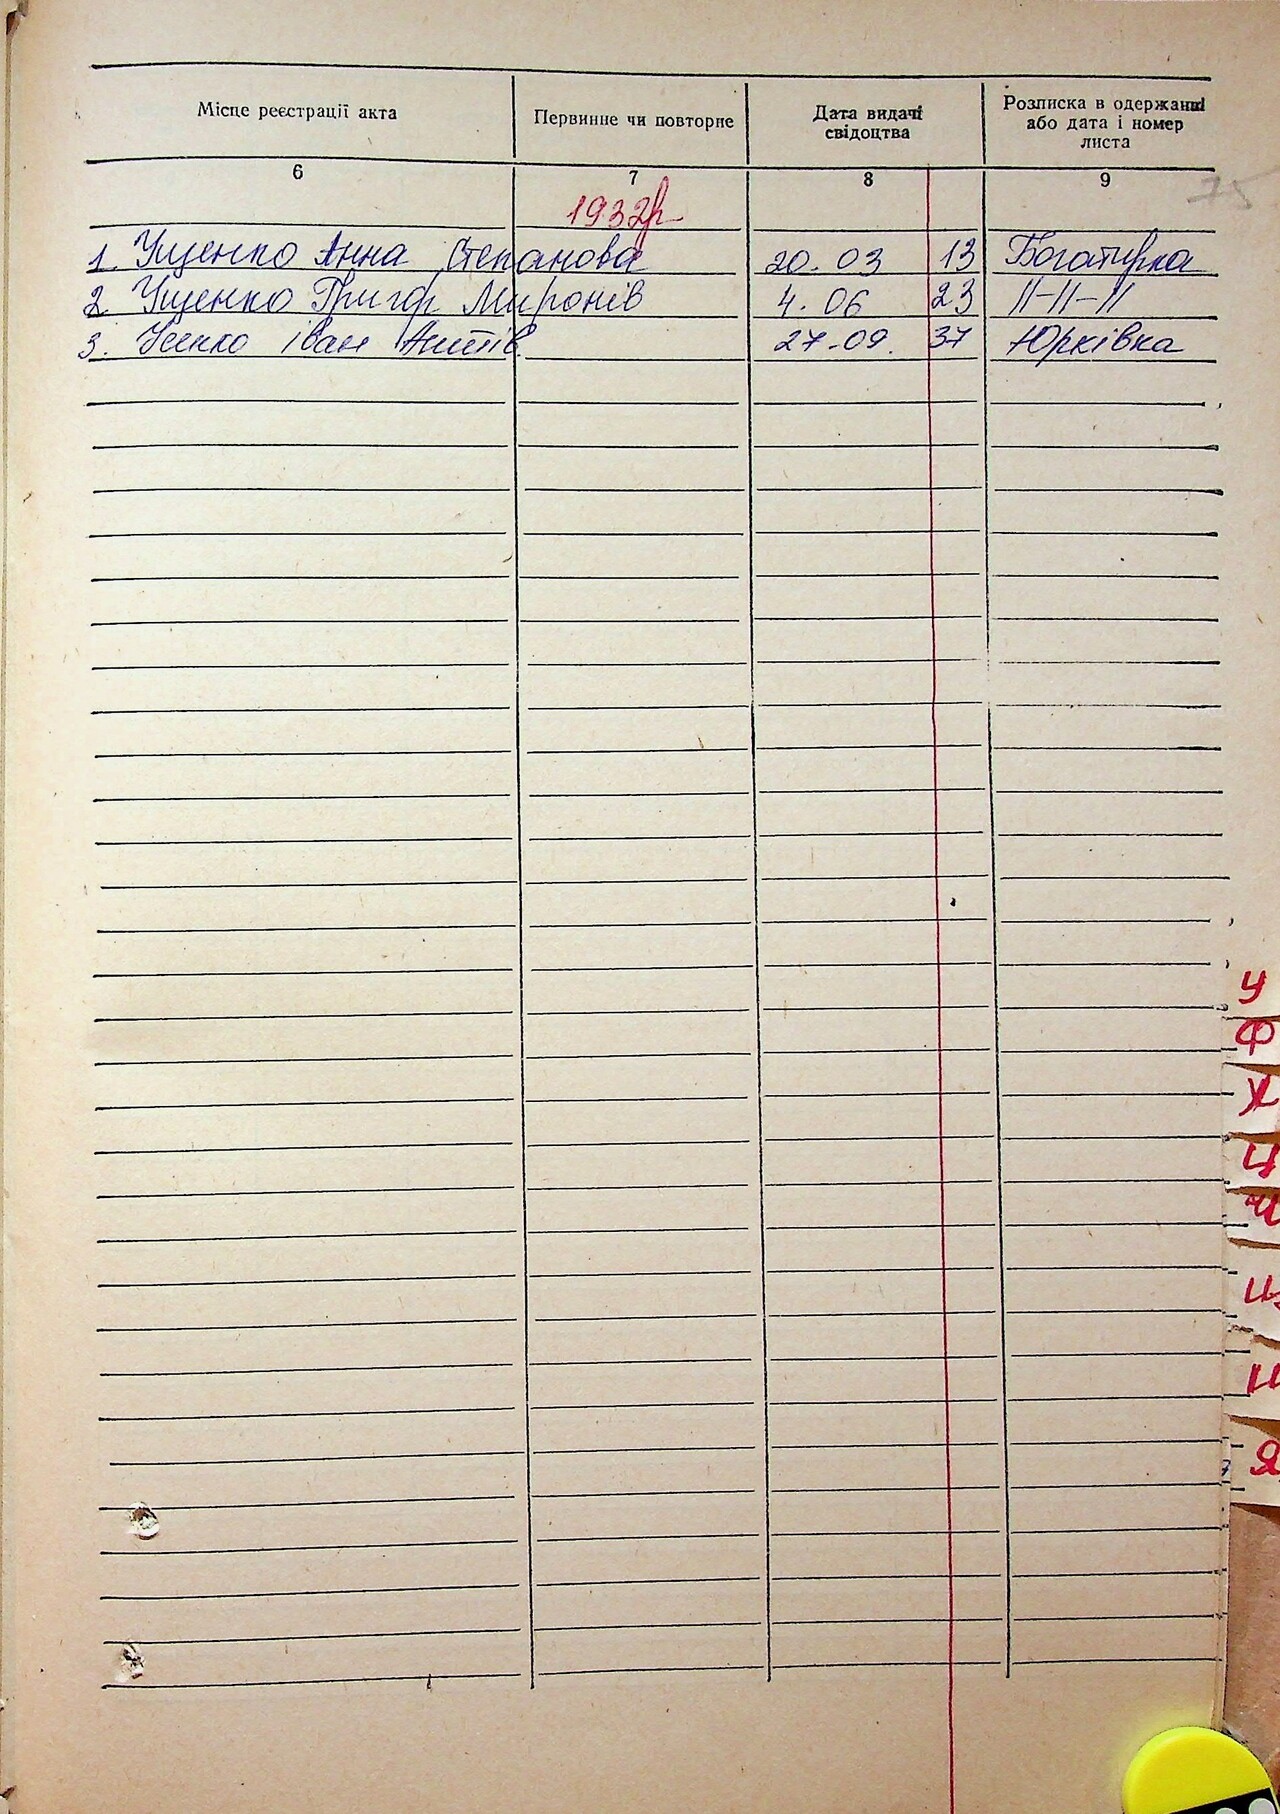 Місце реєстрації акта Первинне чи повторне Дата видачі свідоцтва Розписка в одержанні або дата і номер листа
6 7 8 9
75
1932р
1. Ущенко Анна Степанова 20.03 13 Богатирка
2. Ущенко Григор Миронів 4.06 23 ІІ-ІІ-ІІ
3. Усенко Іван 27.09. 37 Юрківка
У
Ф
Х
Ц
Ч
Я